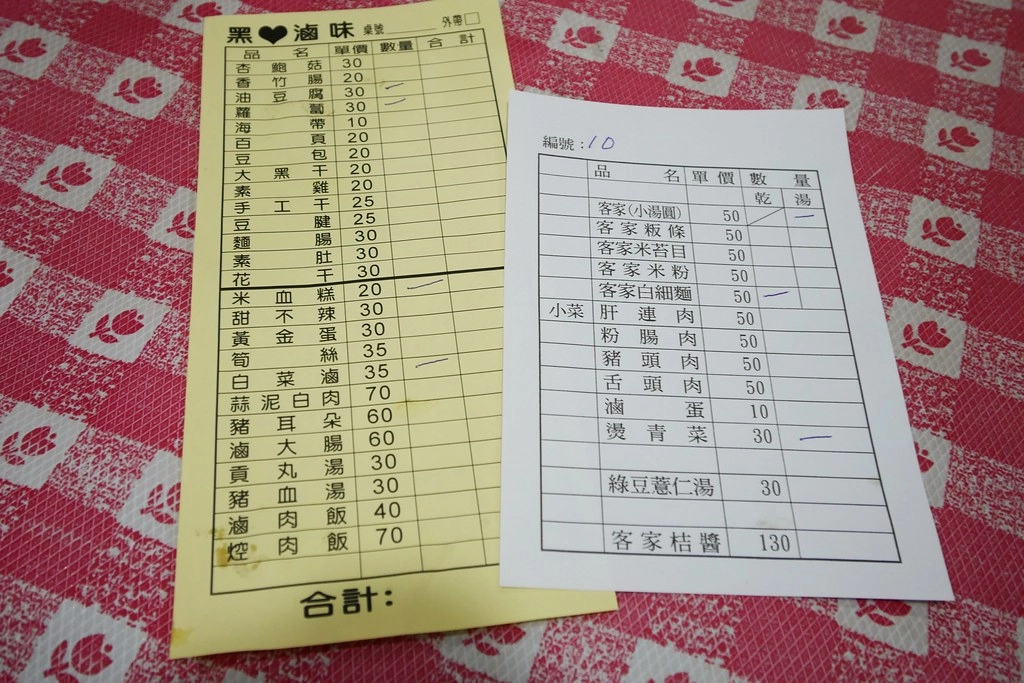 黑❤滷味 桌號 外帶□
品名 單價 數量 合計
杏鮑菇 30
香竹腸 20
油豆腐 30 一
蘿蔔 30 一
海帶 10
百頁 20
豆包 20
大黑干 20
素雞 20
手工干 25
豆腱 25
麵腸 30
素肚 30
花干 30
米血糕 20 一
甜不辣 30
黃金蛋 30
筍絲 35
白菜滷 35 一
蒜泥白肉 70
豬耳朵 60
滷大腸 60
貢丸湯 30
豬血湯 30
滷肉飯 40
焢肉飯 70
合計:
編號:10
品名 單價 數量
乾 湯
客家(小湯圓) 50 一
客家粄條 50
客家米苔目 50
客家米粉 50
客家白細麵 50 一
小菜 肝連肉 50
粉腸肉 50
豬頭肉 50
舌頭肉 50
滷蛋 10
燙青菜 30 一
綠豆薏仁湯 30
客家桔醬 130